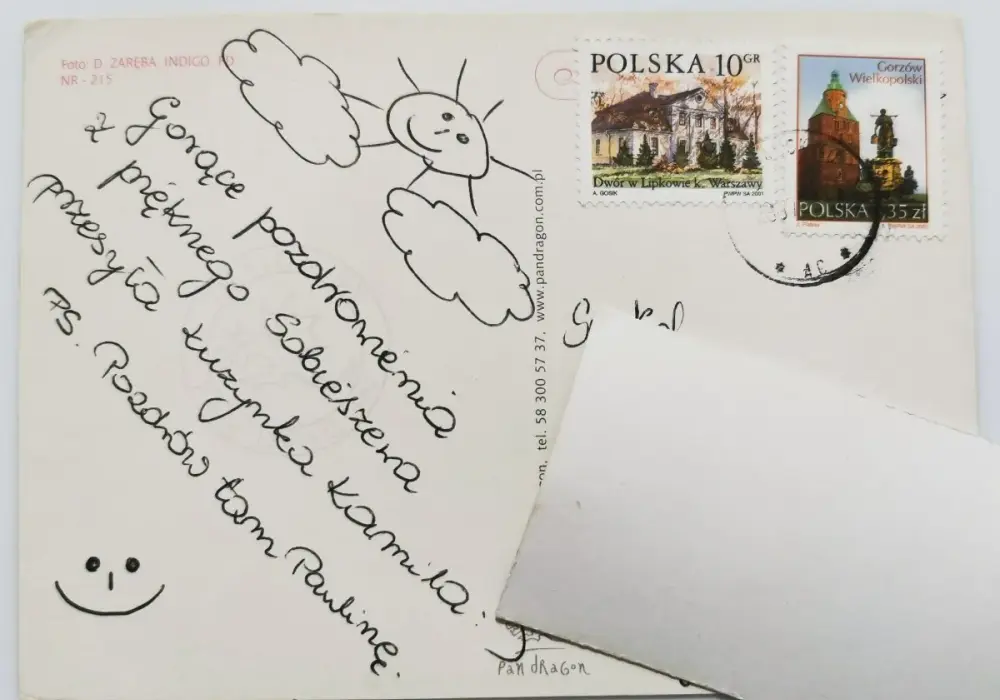 Foto: D. ZARĘBA INDIGO
NR - 215
Gorące pozdrowienia
z pięknego Sobieszewa
przesyła kuzynka Kamila :)
PS. Pozdrów tam Paulinę.
POLSKA 10 GR
Dwór w Lipkowie k. Warszawy
A. GOSIK
PWPW SA 2001
Gorzów
Wielkopolski
POLSKA ,35 zł
PWPW SA
AC
tel. 58 300 57 37, www.pandragon.com.pl
pan dragon